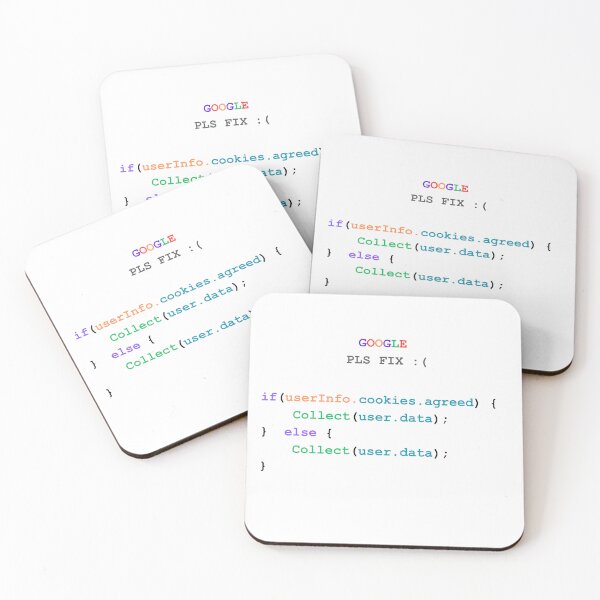 GOOGLE
PLS FIX :(
if(userInfo.cookies.agreed)
Collect(
}
GOOGLE
PLS FIX :(
if(userInfo.cookies.agreed) {
Collect(user.data);
} else {
Collect(user.data);
}
GOOGLE
PLS FIX :(
if(userInfo.cookies.agreed) {
Collect(user.data);
} else {
Collect(user.data)
}
GOOGLE
PLS FIX :(
if(userInfo.cookies.agreed) {
Collect(user.data);
} else {
Collect(user.data);
}